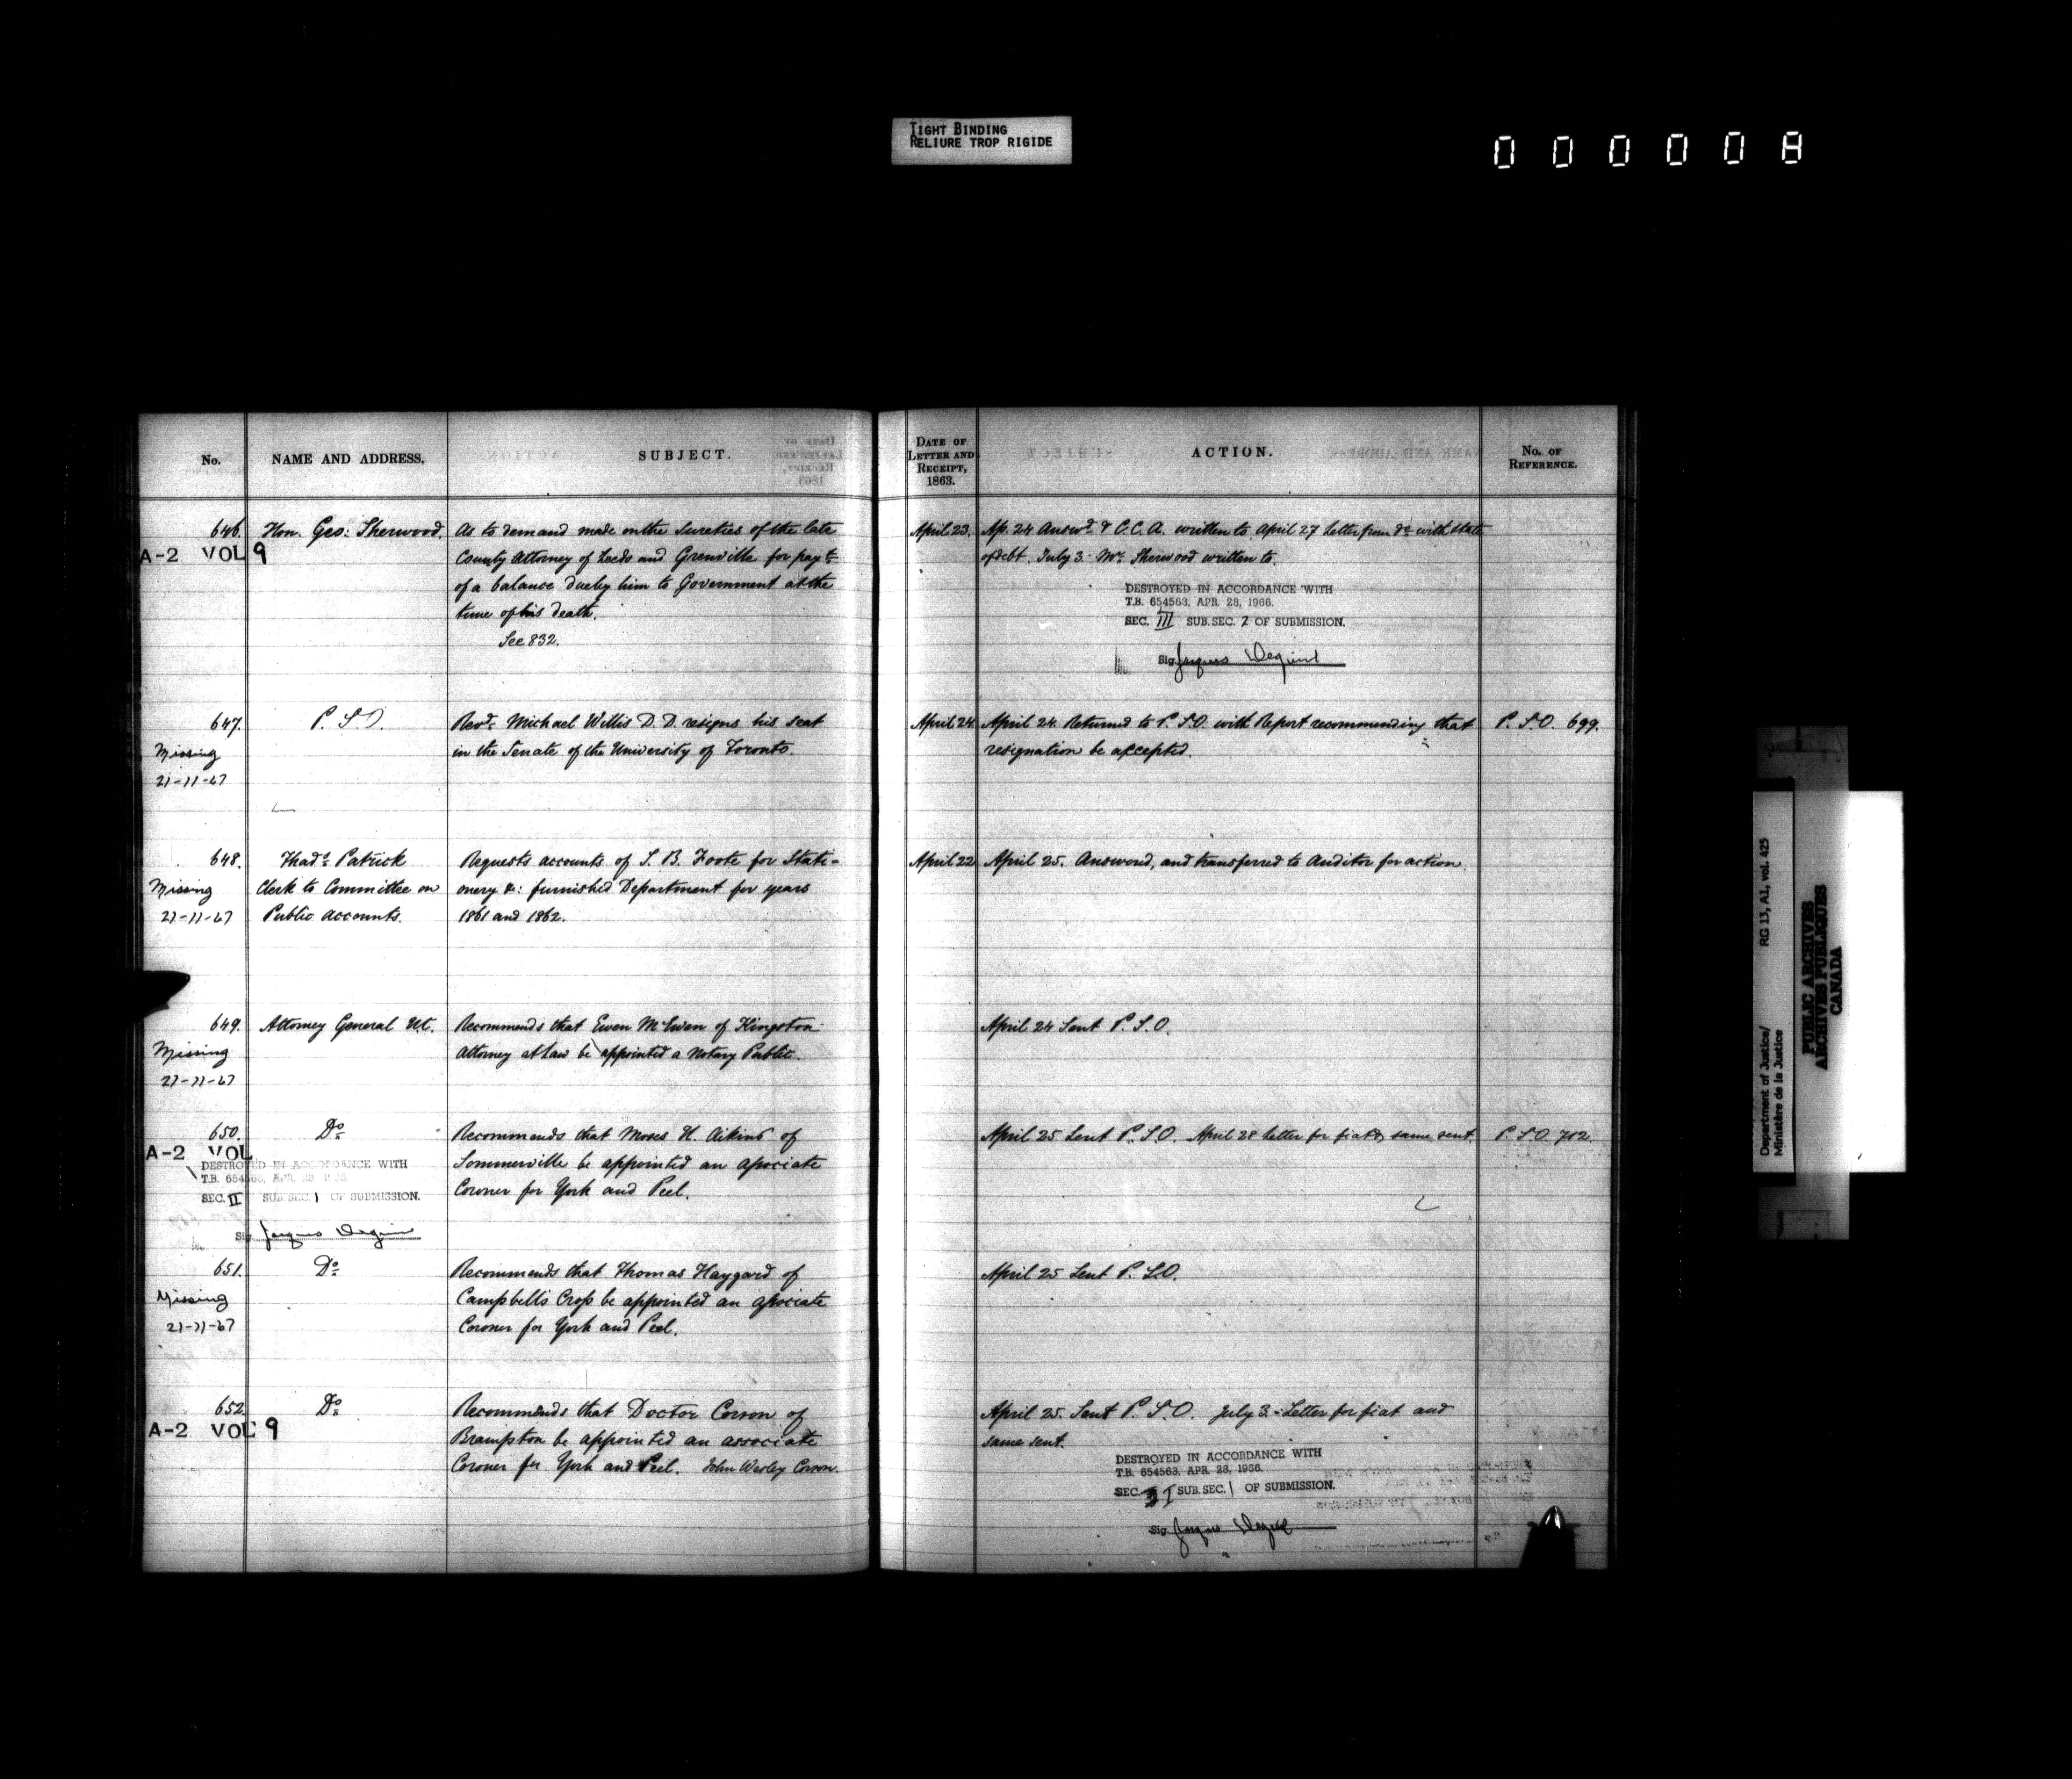 TIGHT BINDING
RELIURE TROP RIGIDE
000008
No.
NAME AND ADDRESS.
SUBJECT.
DATE OF
LETTER AND
RECEIPT,
1863.
ACTION.
No. OF
REFERENCE.
646. Hon. Geo: Sherwood. As to demand made on the Sureties of the late
A-2 VOL 9 County Attorney of Leeds and Grenville for payt
of a balance due by him to Government at the
time of his death.
See 832.
April 23. Ap. 24 Answd & C.C.A. written to. April 27 Letter from Do with state
of debt. July 3. Mr. Sherwood written to.
DESTROYED IN ACCORDANCE WITH
T.B. 654563, APR. 28, 1966.
SEC. III SUB. SEC. 2 OF SUBMISSION.
Sig. Jacques
647. P.S.O. Revd. Michael Willis D.D. resigns his seat
Missing in the Senate of the University of Toronto.
21-11-67
April 24 April 24. Returned to P.S.O. with Report recommending that P.S.O. 699.
resignation be accepted.
648. Thads Patrick Requests accounts of S. B. Foote for Stati-
Missing Clerk to Committee on onery &c: furnished Department for years
21-11-67 Public Accounts. 1861 and 1862.
April 22 April 25. Answered, and transferred to Auditor for action.
649. Attorney General U.C. Recommends that Ewen McEwen of Kingston
Missing Attorney at Law be appointed a Notary Public.
21-11-67
April 24 Sent P.S.O.
650. Do Recommends that Moses H. Aikins of
A-2 VOL Sommerville be appointed an associate
DESTROYED IN ACCORDANCE WITH
T.B. 654563, APR. 28, 1966.
Coroner for York and Peel.
SEC. II SUB. SEC. 1 OF SUBMISSION.
Sig. Jacques
April 25 Sent P.S.O. April 28 Letter for fiat & same sent. P.S.O. 712.
651. Do Recommends that Thomas Haygard of
Missing Campbell's Cross be appointed an associate
21-11-67 Coroner for York and Peel.
April 25 Sent P.S.O.
652. Do Recommends that Doctor Corson of
A-2 VOL 9 Brampton be appointed an associate
Coroner for York and Peel. John Wesley Corson.
April 25. Sent P.S.O. July 3.-Letter for fiat and
same sent.
DESTROYED IN ACCORDANCE WITH
T.B. 654563, APR. 28, 1966.
SEC. I SUB. SEC. 1 OF SUBMISSION.
Sig. Jacques
Department of Justice/ RG 13, A1, vol. 425
Ministère de la Justice
PUBLIC ARCHIVES
ARCHIVES PUBLIQUES
CANADA